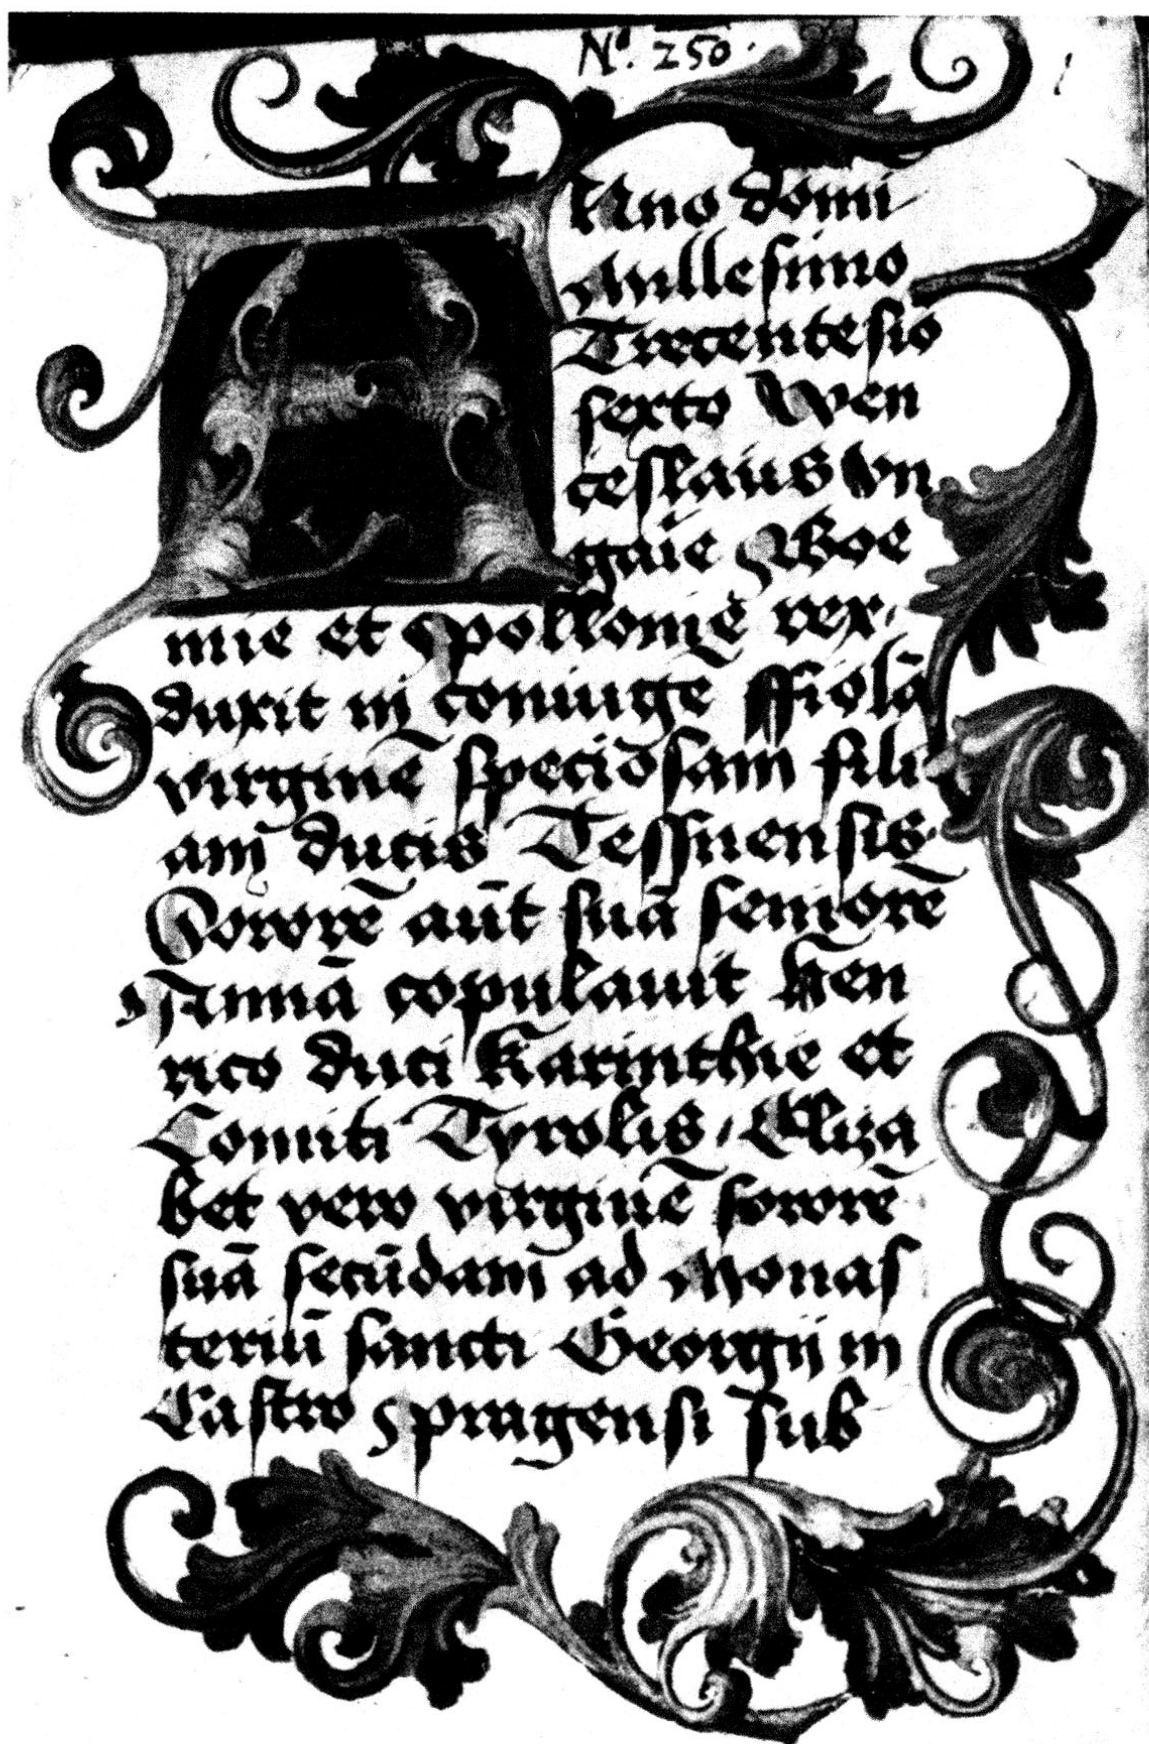 Nº. 250.
Anno domi
Millesimo
Trecentesiō
sexto Wen
ceslaus Vn
gaīe Boe
mie et Pollonie rex.
duxit in coniugē ffiolā
virginē speciosam fili
am ducis Tessinensis.
Sororē aūt suā seniorē
Annā copulauit hen
rico duci Karinthie et
Comiti Tyrolis. Eliza
bet vero virginē sororē
suā secūdam ad Monas
teriū sancti Georgii in
Castro Pragensi sub